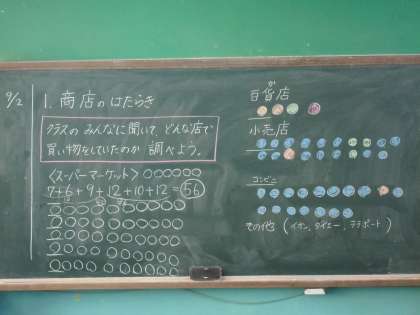 9/2
1. 商店のはたらき
クラスのみんなに聞いて、どんな店で
買い物をしていたのか 調べよう。
〈スーパーマーケット〉
7+6+9+12+10+12=56
百貨店
小売店
コンビニ
その他 (イオン、ダイエー、ララポート)